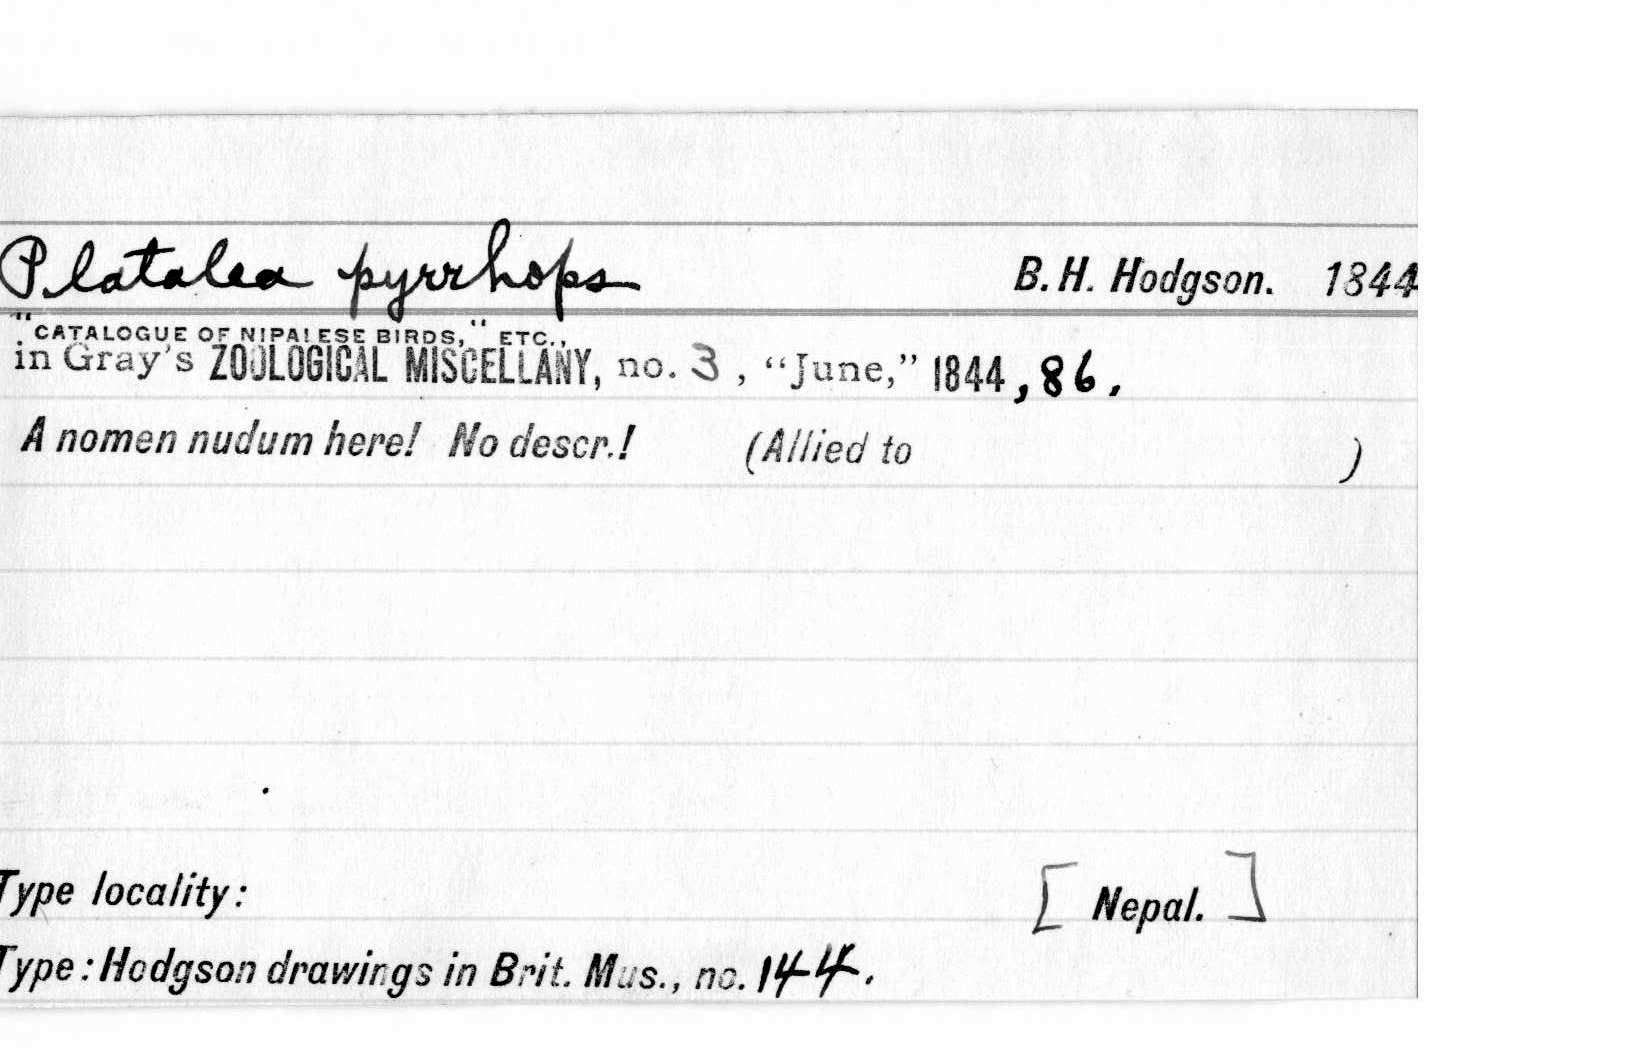 Platalea pyrrhops B. H. Hodgson. 1844
"CATALOGUE OF NIPALESE BIRDS," ETC.,
in Gray's ZOOLOGICAL MISCELLANY, no. 3, "June," 1844, 86.
A nomen nudum here! No descr.! (Allied to )
Type locality: [Nepal.]
Type: Hodgson drawings in Brit. Mus., no. 144.